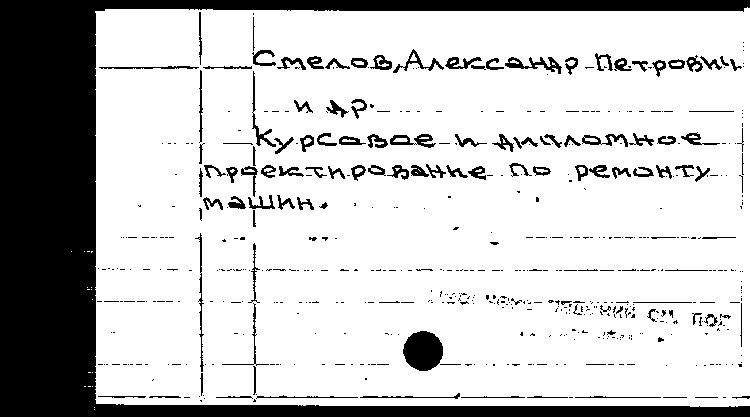 Смелов, Александр Петрович
и др.
Курсовое и дипломное
проектирование по ремонту
машин.
см. под